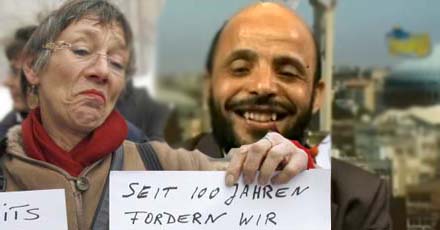 SEIT 100 JAHREN
FORDERN WIR
ITS